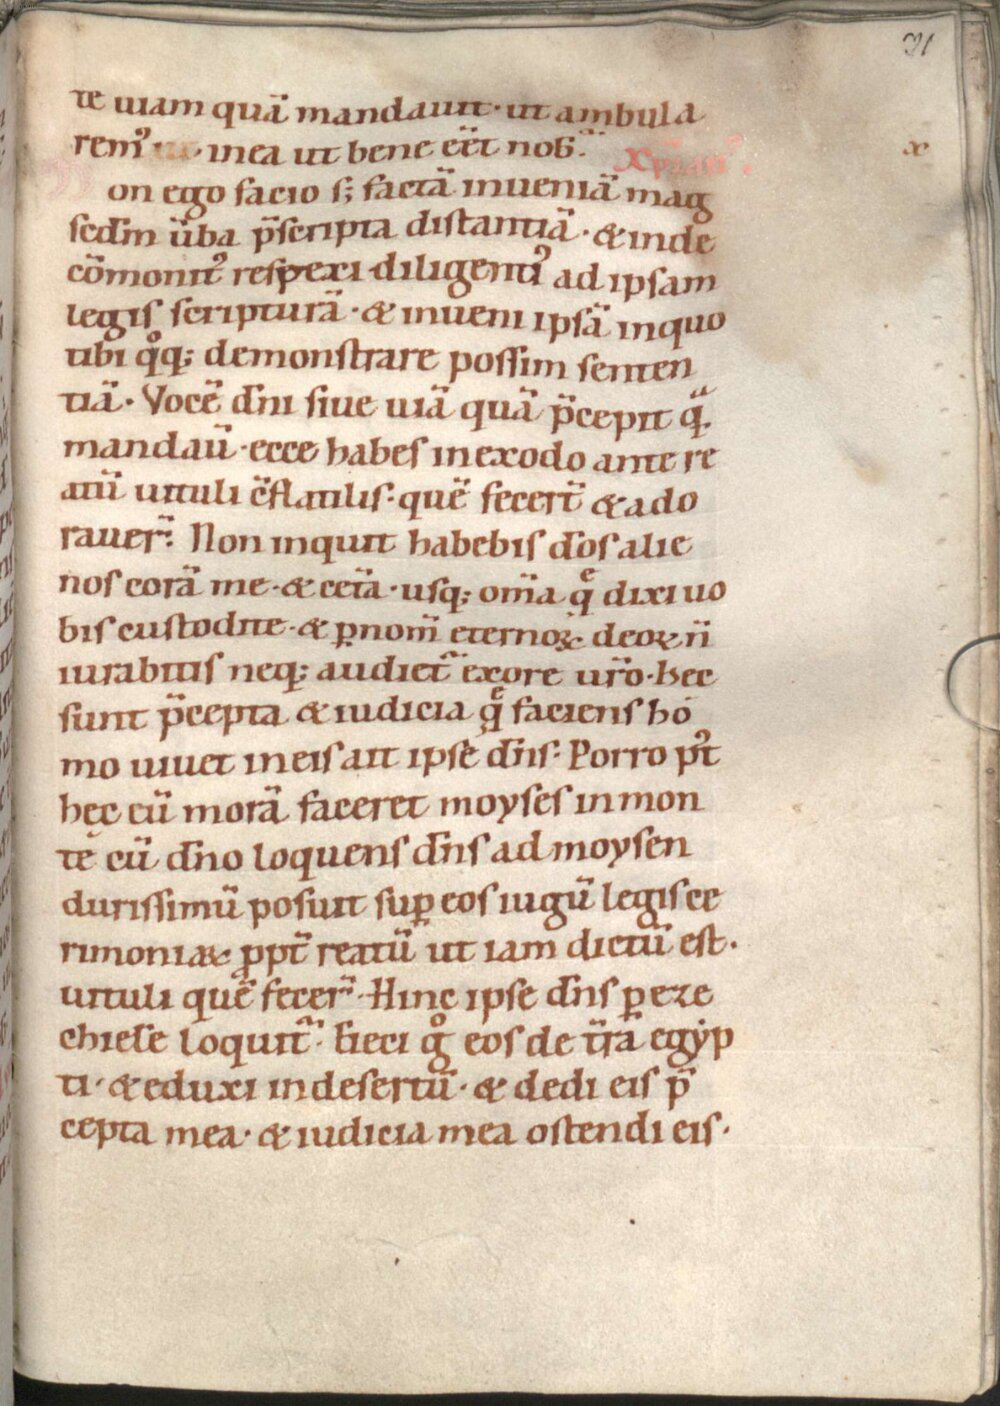 31
te uiam quā mandauit · ut ambula
rem᷒ · inea ut bene eēt nob̄. Xp̄ian᷒.
x
on ego facio s; factā inueniā mag
sed̄m ūba p̄scripta distantiā · & inde
cōmonit᷒ respexi diligenti᷒ ad ipsam
legis scripturā · & inueni ipsā inquo
tibi qͦq; demonstrare possim senten
tiā · Vocē d̄ni siue uiā quā p̄cepit qͣ̄.
mandaū · ecce habes inexodo ante re
atū uituli c̄flatilis · quē fecert̄ & ado
rauer̄. Non inquit habebis d̄os alie
nos corā me · & cet̄a · usq; om̄a qͤ dixi uo
bis custodite · & ꝑnom̄ eternoꝝ deoꝝ n̄
iurabitis neq; audiet᷑ exore ur̄o · hec
sunt p̄cepta & iudicia qͤ faciens ho
mo uiuet ineis ait ipse d̄ns · Porro pt᷒
hęc cū morā faceret moyses inmon
te cū d̄no loquens d̄ns ad moysen
durissimū posuit suꝑ eos iugū legis ce
rimoniaꝝ ꝓpt̄ reatū ut iam dictū est ·
uituli quē fecer̄ · Hinc ipse d̄ns ꝑ eze
chiele loquit᷑ · Eieci gͦ eos de t̄ra egẏp
ti · & eduxi indesertū · & dedi eis p̄
cepta mea · & iudicia mea ostendi eis ·